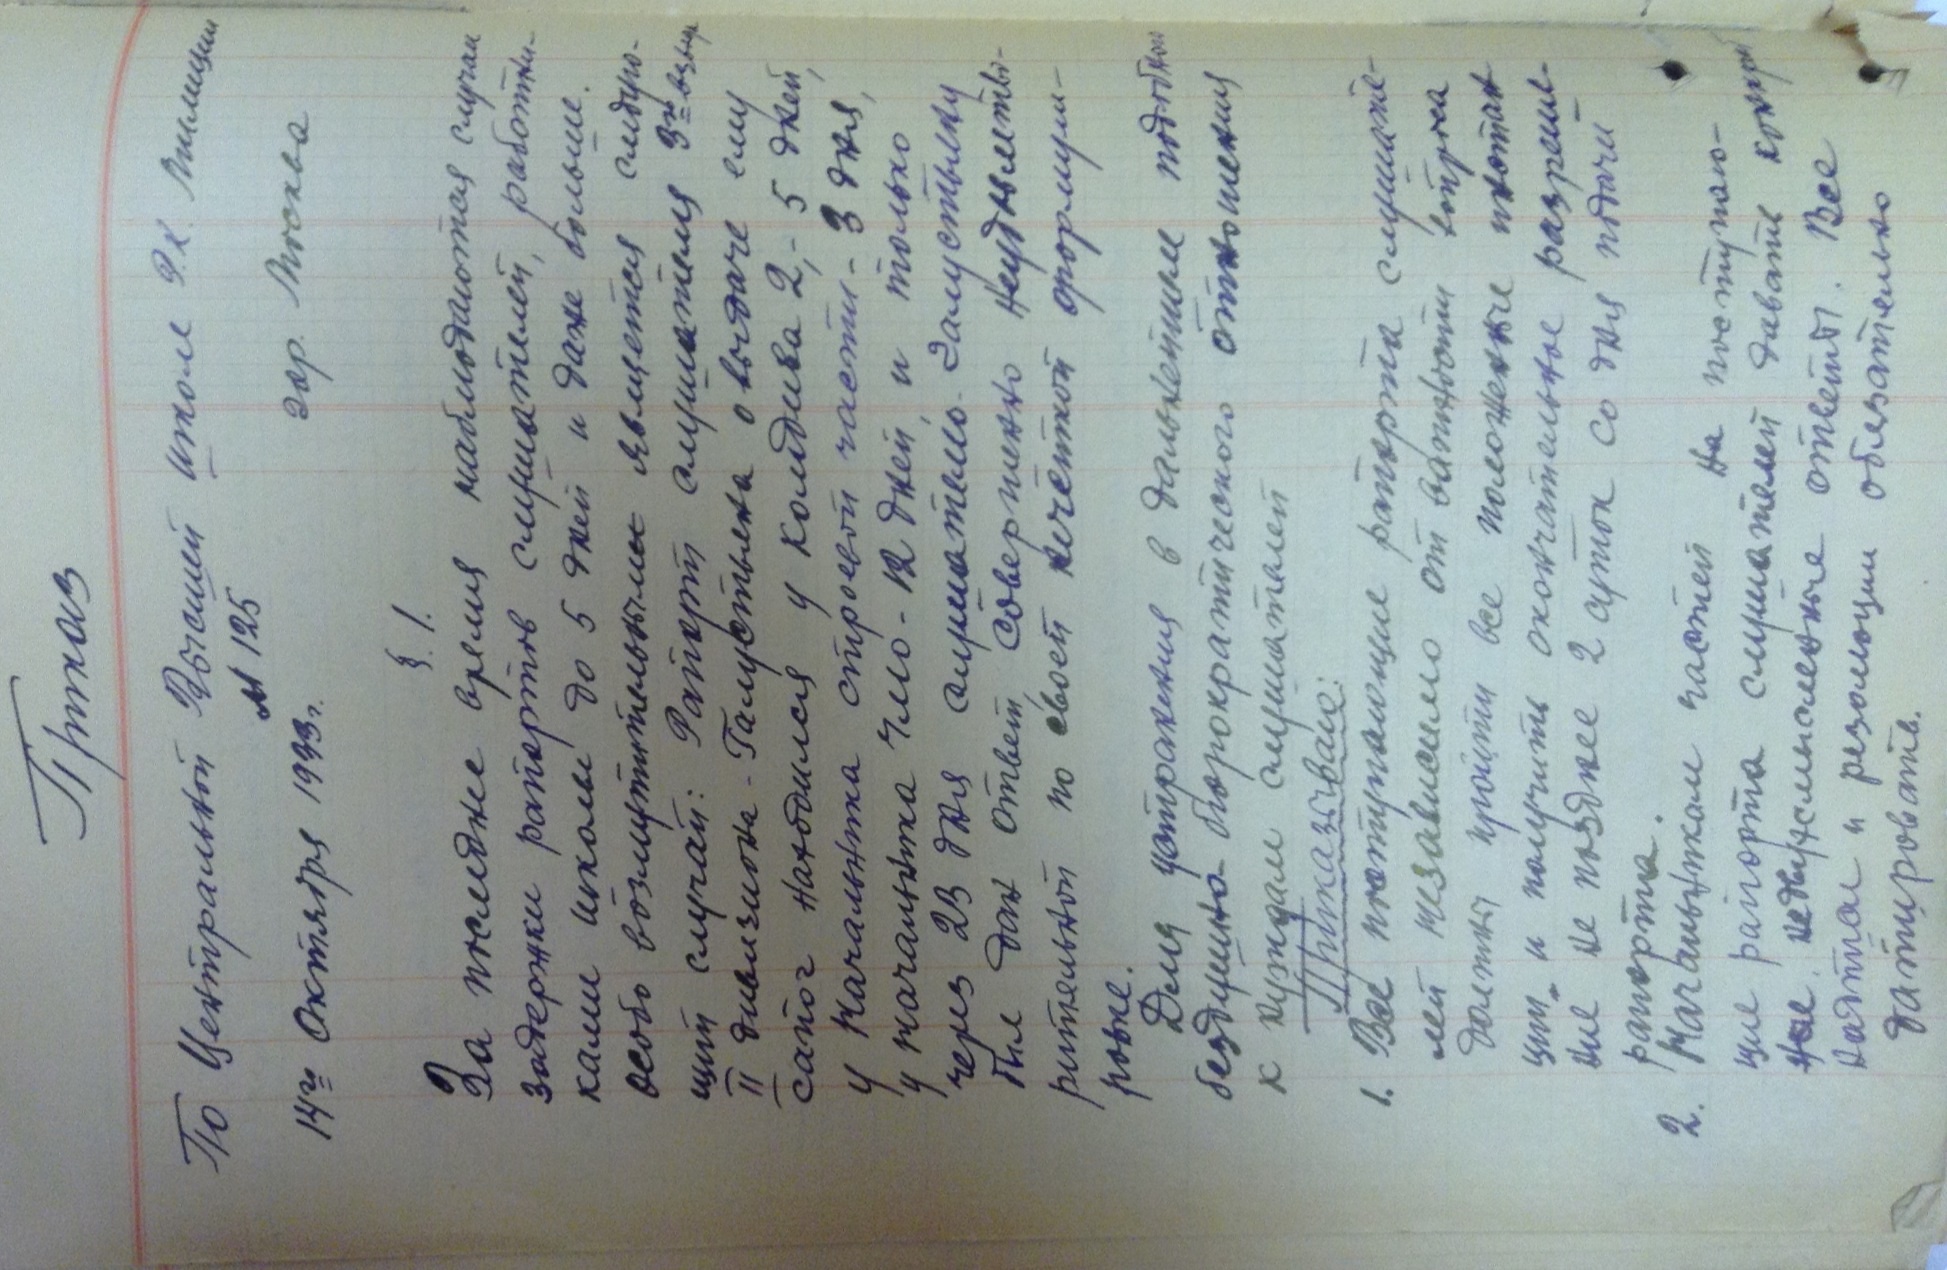 Приказ
По Центральной Высшей школе Р.К. Милиции
№ 125
14го Октября 1933 г. гор. Москва
§ 1.
За последнее время наблюдаются случаи
задержки рапортов слушателей, работни-
ками школы до 5 дней и даже больше.
особо возмутительным является следую-
щий случай: Рапорт слушателя 3го взвода
II дивизиона - Галустьяна о выдаче ему
сапог находился у комдива 2,- 5 дней,
у начальника строевой части - 3 дня,
у начальника УМО - 12 дней, и только
через 23 дня слушателю Галустьяну
был дан ответ совершенно неудовлетво-
рительный по своей нечёткой формули-
ровке.
Для устранения в дальнейшем подобного
бездушно-бюрократического отношения
к нуждам слушателей
Приказываю:
1. Все поступающие рапорта слушате-
лей независимо от важности вопроса
должны пройти все положенные инстан
ции и получить окончательное разреше-
ние не позднее 2 суток со дня подачи
рапорта.
2. Начальникам частей на поступаю-
щие рапорта слушателей давать конкрет
ные недвусмысленные ответы. Все
даты и резолюции обязательно
датировать.